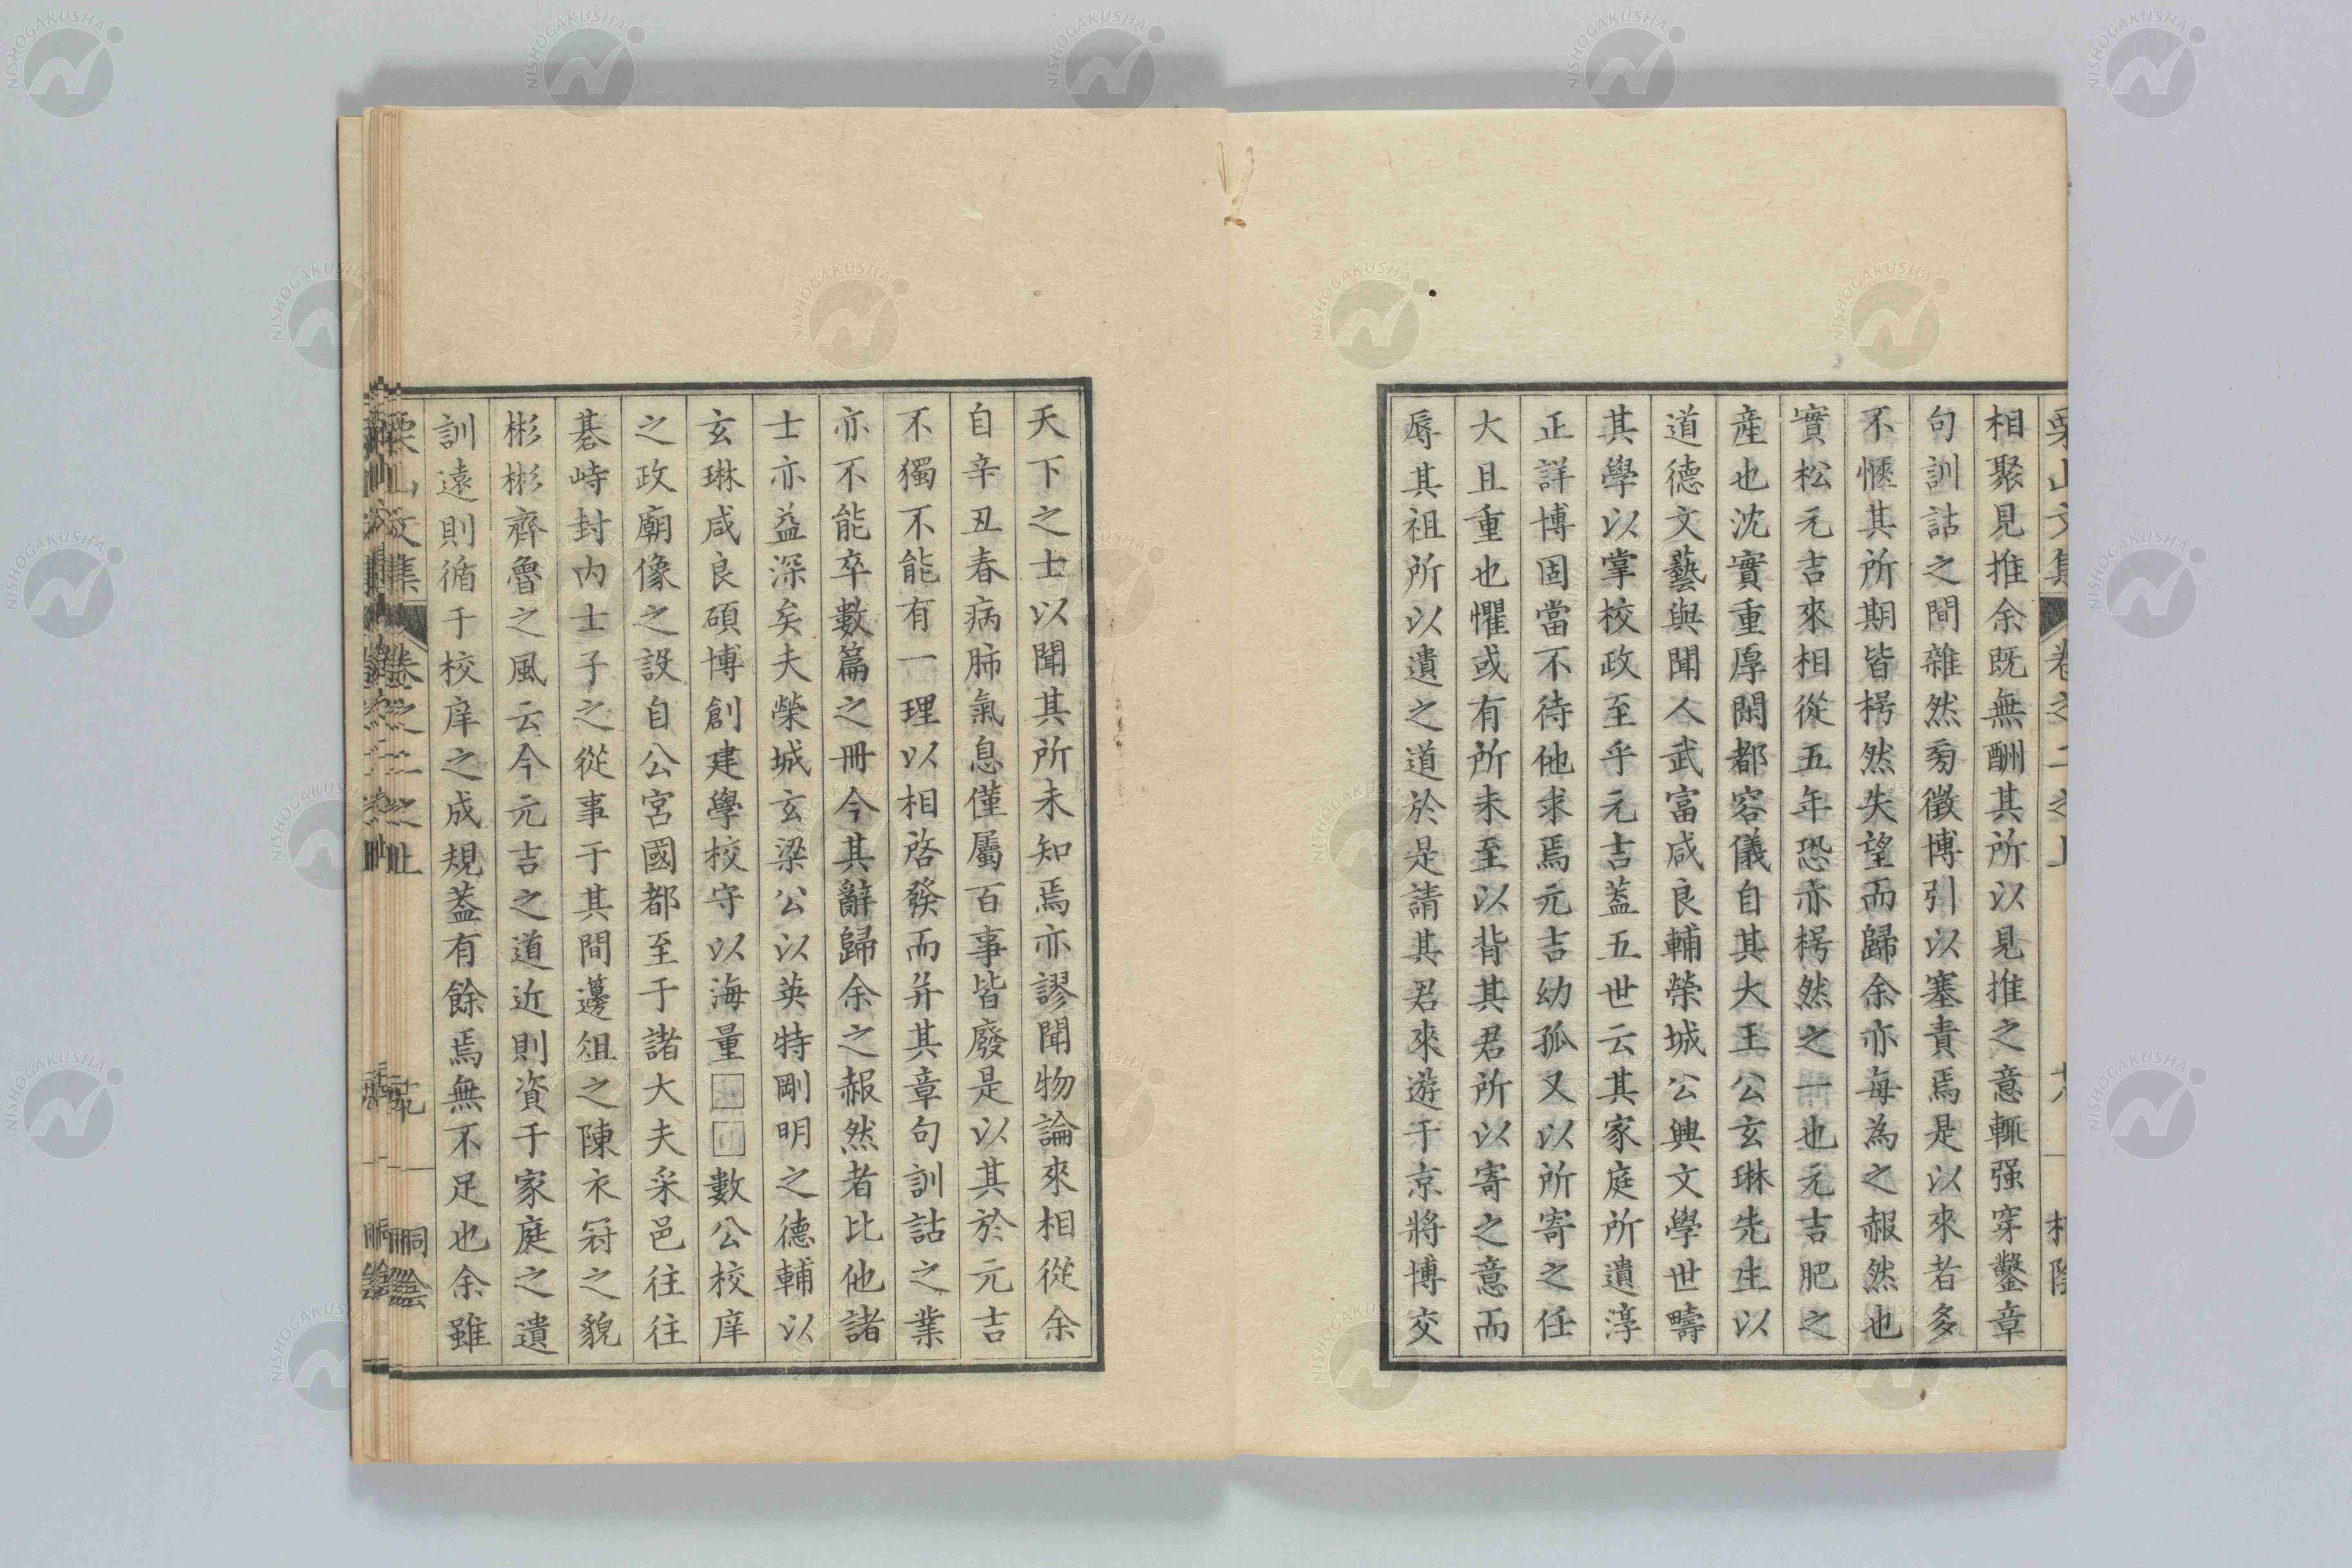 相聚見推余既無酬其所以見推之意輒强穿鑿章
句訓詁之間雜然旁徵博引以塞責焉是以來者多
不愜其所期皆愕然失望而歸余亦每為之赧然也
實松元吉來相從五年恐亦楞然之一也元吉肥之
産也沈實重厚閑都容儀自其大王公玄琳先生以
道德文藝與聞人武富咸良輔榮城公興文學世疇
其學以掌校政至乎元吉蓋五世云其家庭所遺淳
正詳博固當不待他求焉元吉幼孤又以所寄之任
大且重也懼或有所未至以背其君所以寄之意而
辱其祖所以遺之道於是請其君來遊于京將博交
天下之士以聞其所未知焉亦謬聞物論來相從余
自辛丑春病肺氣息僅屬百事皆廢是以其於元吉
不獨不能有一理以相啓發而并其章句訓詁之業
亦不能卒數篇之冊今其辭歸余之赧然者比他諸
士亦益深矣夫榮城玄梁公以英特剛明之德輔以
玄琳咸良碩博創建學校守以海量□□數公校庠
之政廟像之設自公宮國都至于諸大夫采邑往往
碁峙封內士子之從事于其間籩俎之陳衣冠之貌
彬彬齊魯之風云今元吉之道近則資于家庭之遺
訓遠則循于校庠之成規蓋有餘焉無不足也余雖
栗山文集 卷之二之上
NISHOGAKUSHA